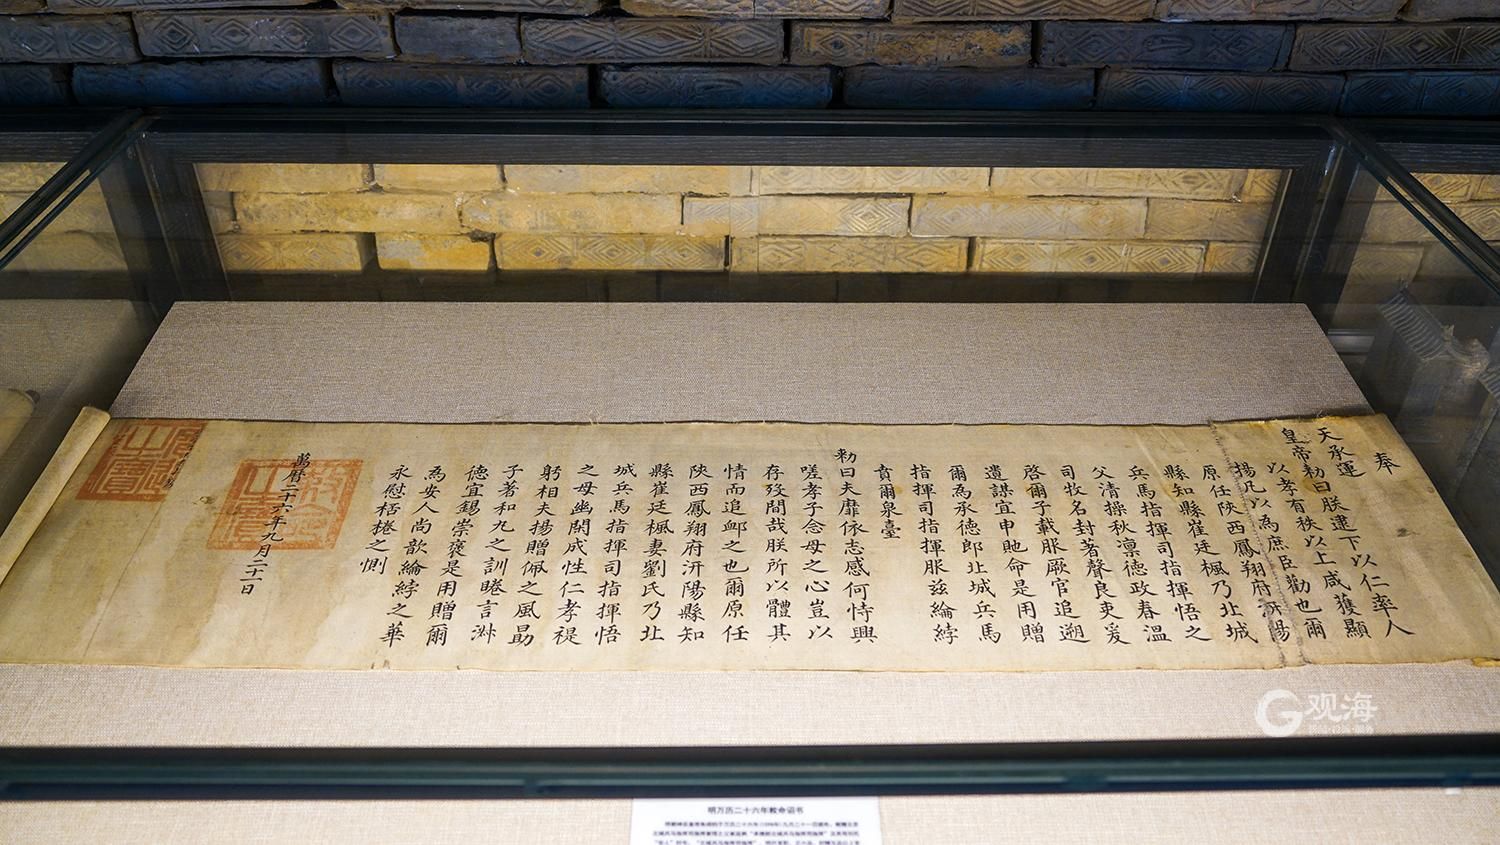 奉
天承運
皇帝勅曰朕遵下以仁率人
以孝有秩以上咸獲顯
揚凡以為庶臣勸也爾
原任陝西鳳翔府汧陽
縣知縣崔廷楓乃北城
兵馬指揮司指揮悟之
父清操秋凛德政春温
司牧名封著聲良吏爰
啓爾子載服厥官追遡
遺謀宜申貤命是用贈
爾為承德郎北城兵馬
指揮司指揮服兹綸綍
賁爾泉臺
勅曰夫靡依志感何恃興
嗟孝子念母之心豈以
存殁間哉朕所以體其
情而追邮之也爾原任
陝西鳳翔府汧陽縣知
縣崔廷楓妻劉氏乃北
城兵馬指揮司指揮悟
之母幽閑成性仁孝禔
躬相夫揚贈佩之風勗
子著和九之訓睠言淋
德宜錫崇褒是用贈爾
為安人尚歆綸綍之華
永慰桮棬之惻
萬曆二十六年九月二十一日
之寶
觀海
明万历二十六年敕命诏书